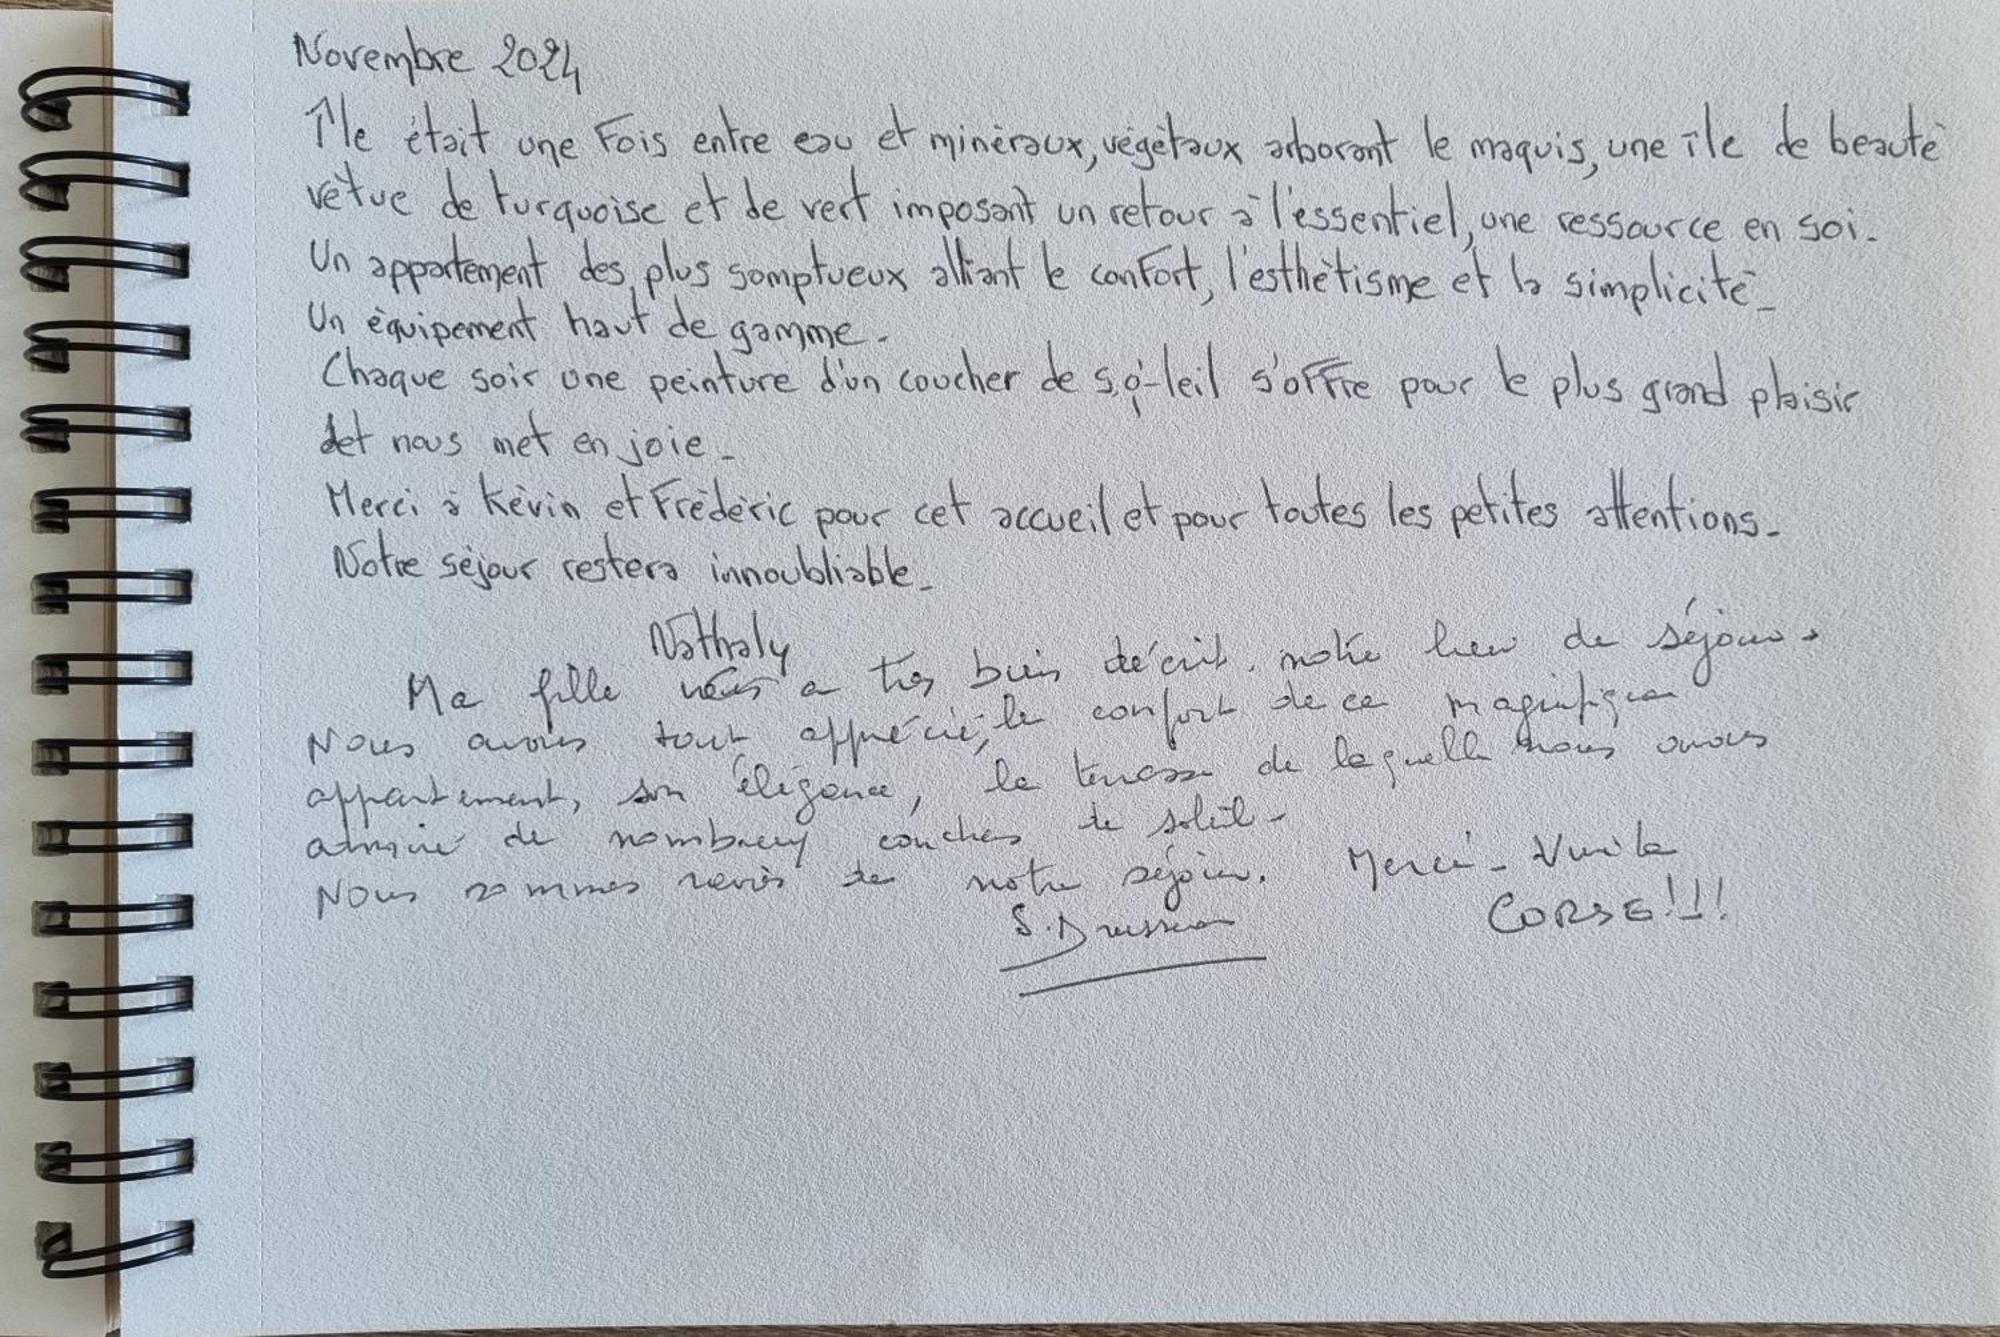 Novembre 2024
Île était une Fois entre eau et minéraux, végétaux arborant le maquis, une île de beauté
vêtue de turquoise et de vert imposant un retour à l'essentiel, une ressource en soi.
Un appartement des plus somptueux alliant le confort, l'esthétisme et la simplicité_
Un équipement haut de gamme.
Chaque soir une peinture d'un coucher de soleil s'offre pour le plus grand plaisir
et nous met en joie_
Merci à Kévin et Frédéric pour cet accueil et pour toutes les petites attentions_
Notre séjour restera innoubliable_
Nathaly
Ma fille a très bien décrit notre lieu de séjour.
Nous avons tout apprécié, le confort de ce magnifique
appartement, son élégance, la terrasse de laquelle nous avons
admiré de nombreux couchers de soleil-
Nous sommes ravis de notre séjour. Merci - Vive la
CORSE!!!
S.